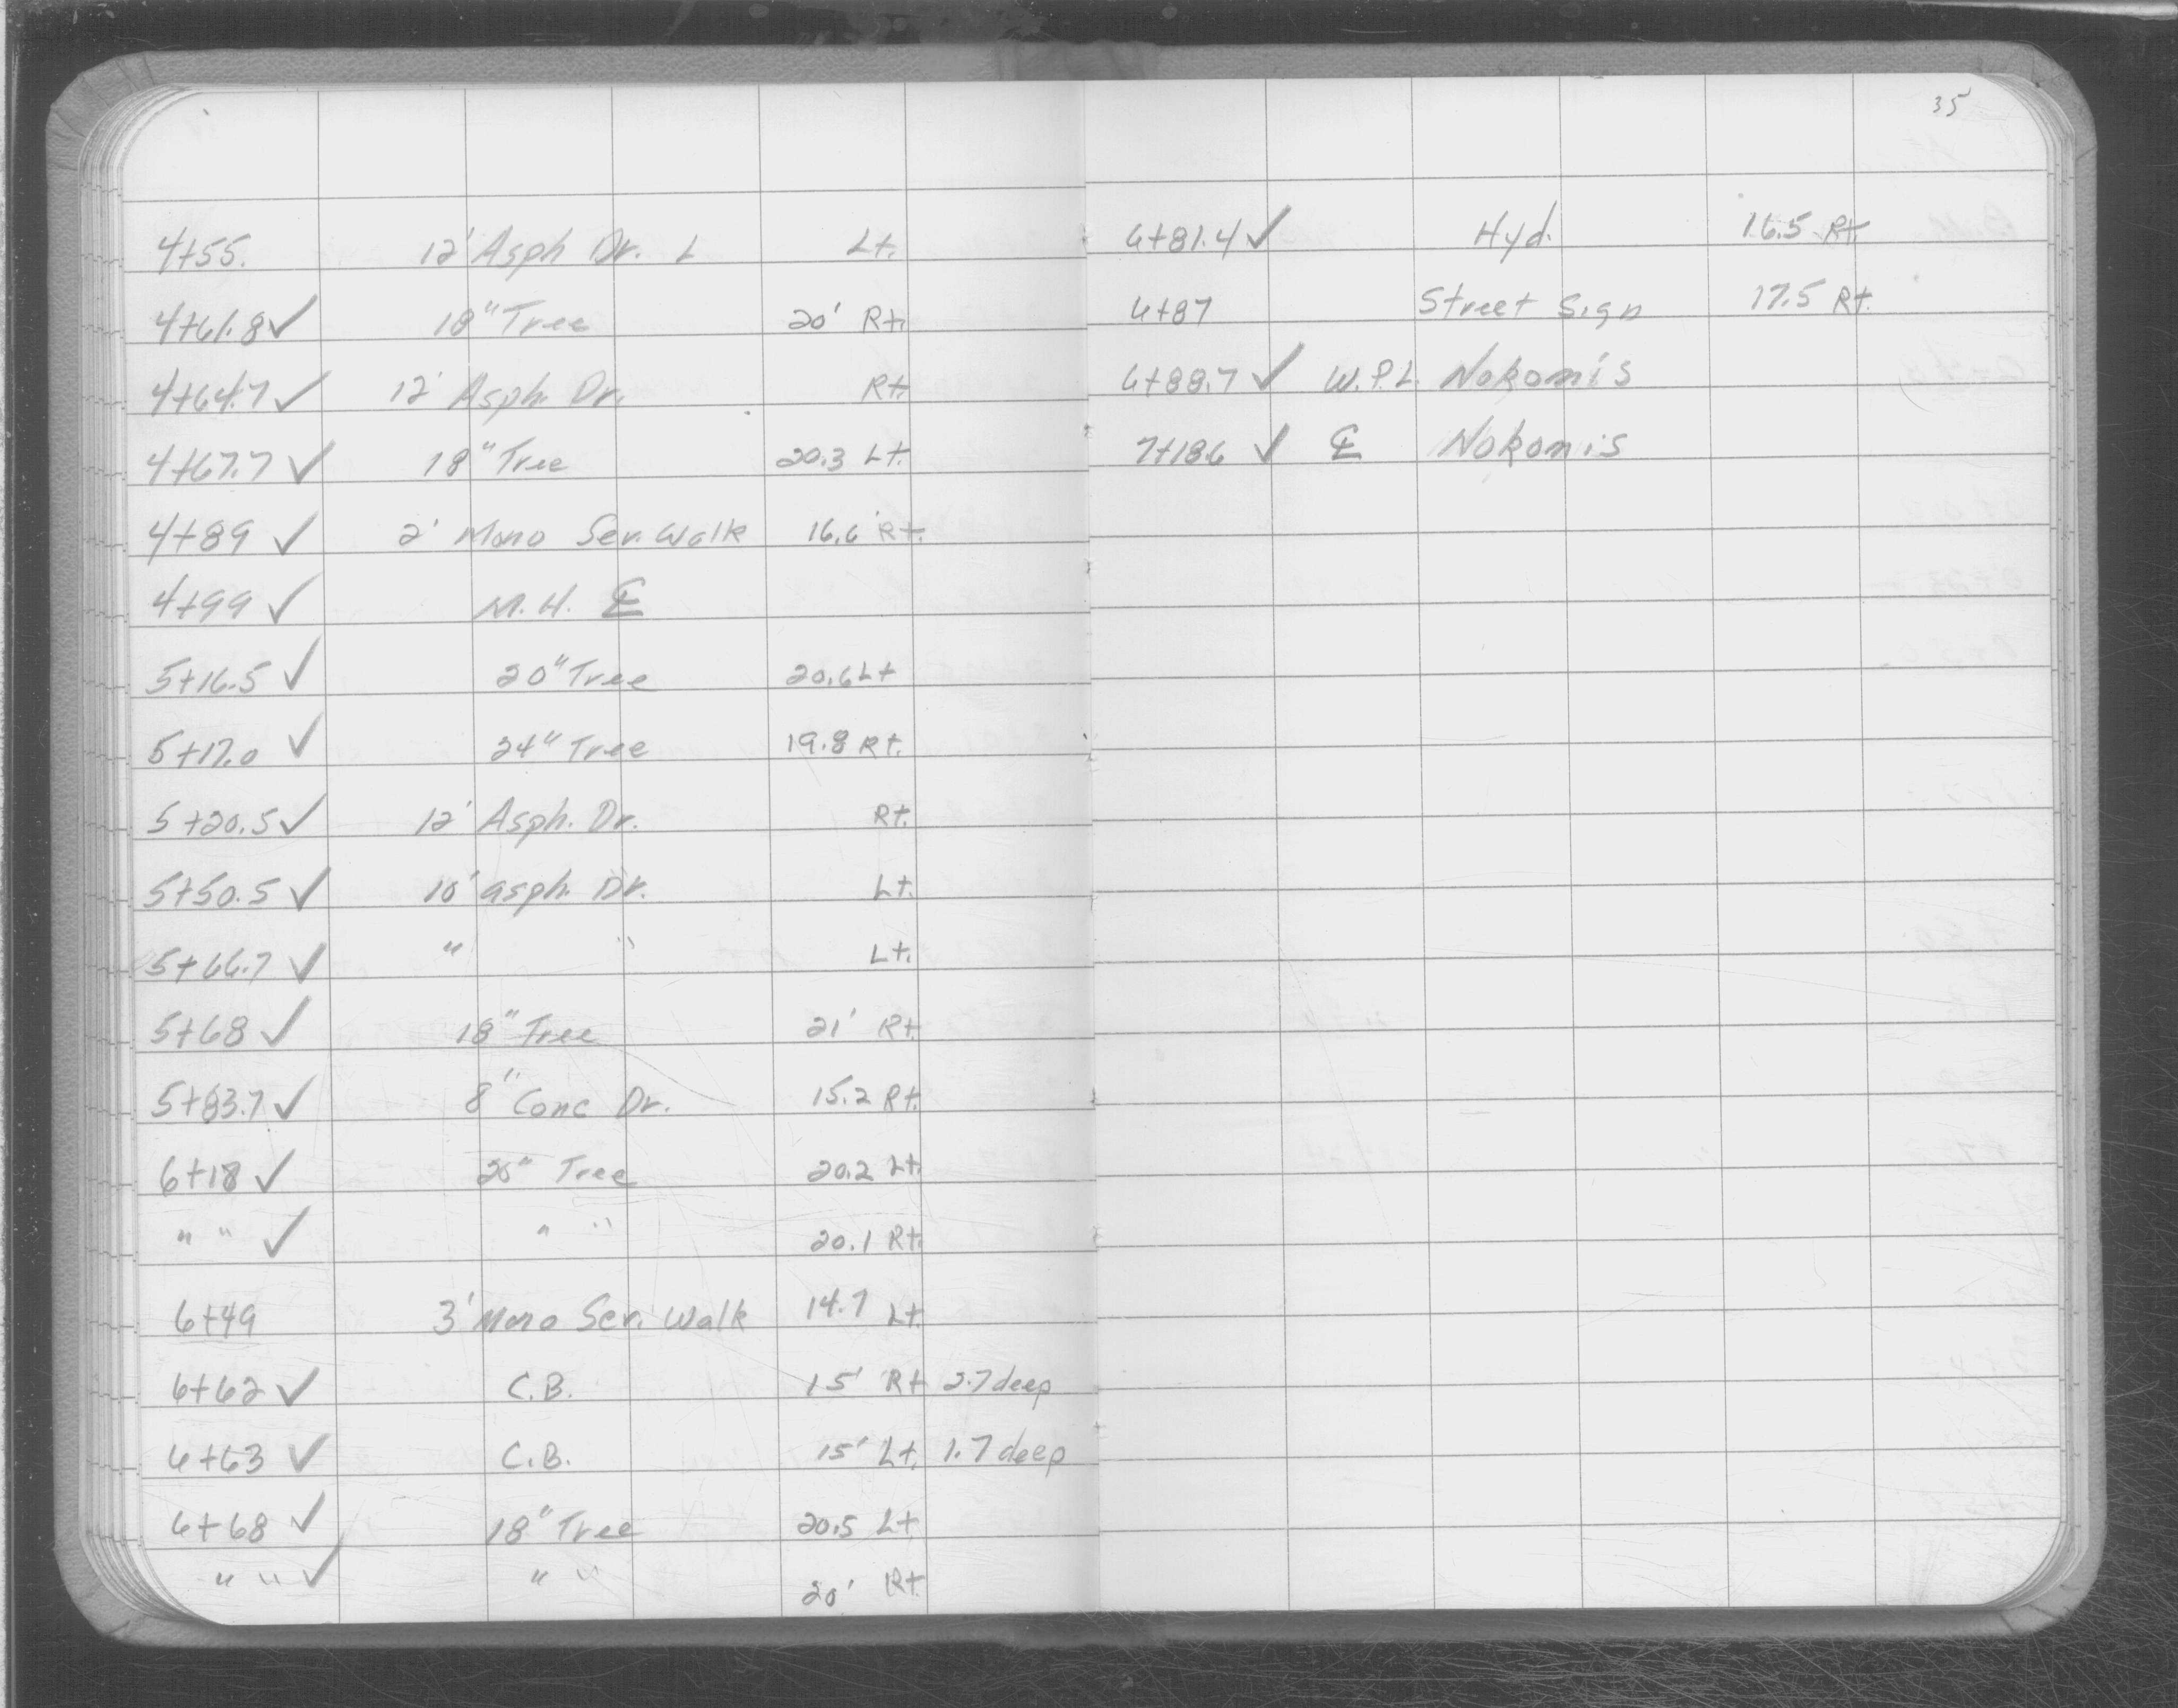 4+55. 12' Asph Dr. L Lt.
4+61.8 ✓ 18" Tree 20' Rt.
4+64.7 ✓ 12' Asph. Dr. Rt.
4+67.7 ✓ 18" Tree 20.3 Lt.
4+89 ✓ 2' Mono Ser. Walk 16.6' Rt.
4+99 ✓ M.H. ℄
5+16.5 ✓ 20" Tree 20.6 Lt
5+17.0 ✓ 24" Tree 19.8 Rt.
5+20.5 ✓ 12' Asph. Dr. Rt.
5+50.5 ✓ 10' asph. Dr. Lt.
5+66.7 ✓ " " Lt.
5+68 ✓ 18" Tree 21' Rt.
5+83.7 ✓ 8" Conc Dr. 15.2 Rt.
6+18 ✓ 20" Tree 20.2 Lt.
" " ✓ " " 20.1 Rt.
6+49 3' Mono Ser. Walk 14.7 Lt.
6+62 ✓ C.B. 15' Rt 2.7 deep
6+63 ✓ C.B. 15' Lt. 1.7 deep
6+68 ✓ 18" Tree 20.5 Lt.
" " ✓ " " 20' Rt.
35
6+81.4 ✓ Hyd. 16.5 Rt.
6+87 Street Sign 17.5 Rt.
6+88.7 ✓ W.P.L. Nokomis
7+18.6 ✓ ℄ Nokomis